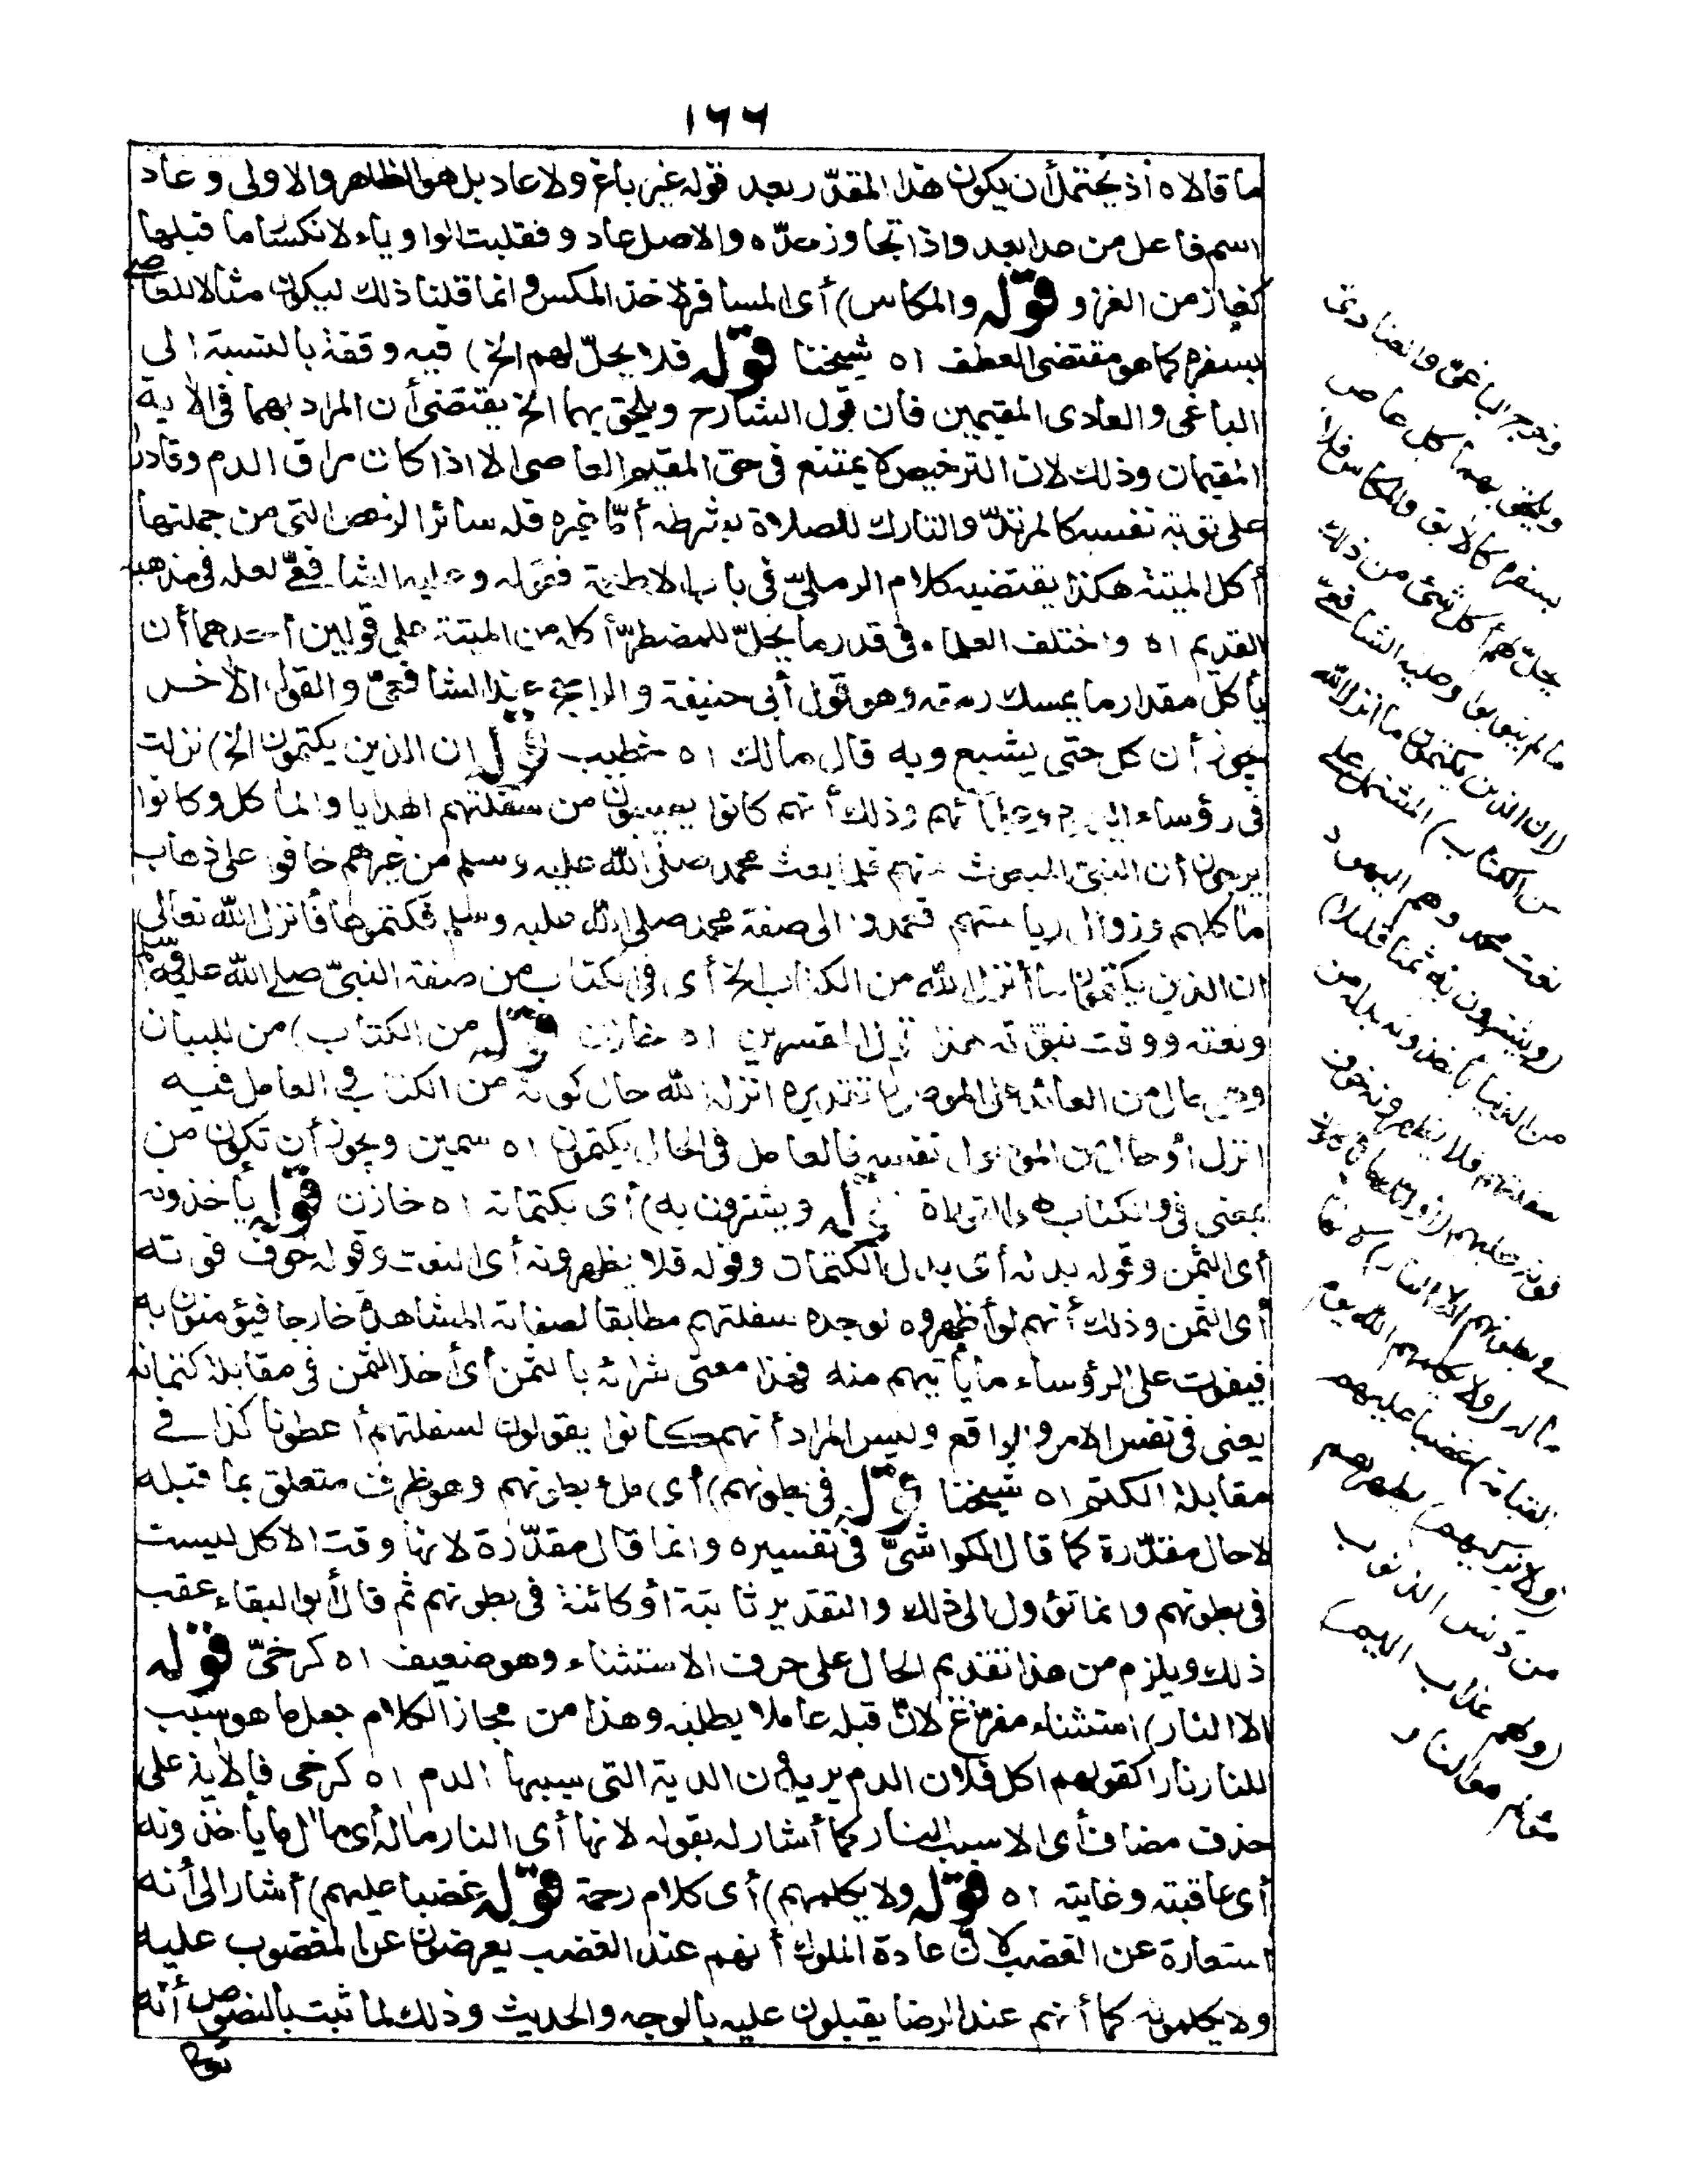 ١٦٦
ما قالاه اذ يحتمل أن يكون هذا المقدّر بعد قوله غير باغ ولا عاد بل هو الظاهر والاولى وعاد
اسم فاعل من عدا يعدو اذا تجاوز حدّه والاصل عادو فقلبت الواو ياء لانكسار ما قبلها
كغاز من الغزو قوله والمكاس) أى المسافر لاخذ المكس وانما قلنا ذلك ليكون مثالا للعاصى
بسفره كما هو مقتضى العطف اه شيخنا قوله فلا يحلّ لهم الخ) فيه وقفة بالنسبة الى
الباغى والعادى المقيمين فان قول الشارح ويلحق بهما الخ يقتضى أن المراد بهما فى الآية
المقيمان وذلك لان الترخيص لا يمتنع فى حق المقيم العاصى الا اذا كان مراق الدم وقادرا
على توبة نفسه كالمرتدّ والتارك للصلاة بشرطه أمّا غيره فله سائر الرخص التى من جملتها
أكل الميتة هكذا يقتضيه كلام الرملىّ فى باب الاطعمة فقوله وعليه الشافعىّ لعله فى مذهبه
القديم اه واختلف العلماء فى قدر ما يحلّ للمضطرّ أكله من الميتة على قولين أحدهما أن
يأكل مقدار ما يمسك رمقه وهو قول أبى حنيفة والراجح عند الشافعىّ والقول الآخر
يجوز أن كل حتى يشبع وبه قال مالك اه خطيب قوله ان الذين يكتمون الخ) نزلت
فى رؤساء اليهود وعلمائهم وذلك أنهم كانوا يصيبون من سفلتهم الهدايا والمآكل وكانوا
يرجون أن النبىّ المبعوث منهم فلما بعث محمد صلى الله عليه وسلم من غيرهم خافوا على ذهاب
مآكلهم وزوال رياستهم فعمدوا الى صفة محمد صلى الله عليه وسلم فكتموها فأنزل الله تعالى
ان الذين يكتمون ما أنزل الله من الكتاب الخ أى فى الكتاب من صفة النبىّ صلى الله عليه وسلم
ونعته ووقت نبوّته هذا قول المفسرين اه خازن قوله من الكتاب) من للبيان
وهى حال من العائد على الموصول تقديره انزله الله حال كونه من الكتاب فالعامل فيه
انزل أو حال من الموصول نفسه فالعامل فى الحال يكتمون اه سمين ويجوز أن تكون من
بمعنى فى والكتاب هو التوراة قوله ويشترون به) أى بكتمانه اه خازن قوله يأخذونه
أى الثمن وقوله بدله أى بدل الكتمان وقوله فلا يظهرونه أى النعت وقوله خوف فوته
أى الثمن وذلك أنهم لو أظهروه لوجده سفلتهم مطابقا لصفاته المشاهدة خارجا فيؤمنون به
فيفوت على الرؤساء ما يأتيهم منه فهذا معنى شرائه بالثمن أى أخذ الثمن فى مقابلة كتمانه
يعنى فى نفس الامر والواقع وليس المراد أنهم كانوا يقولون لسفلتهم أعطونا كذا فى
مقابلة الكتم اه شيخنا قوله فى بطونهم) أى ملء بطونهم وهو ظرف متعلق بما قبله
لا حال مقدّرة كما قال الكواشىّ فى تفسيره وانما قال مقدّرة لانها وقت الاكل ليست
فى بطونهم وانما تؤول الى ذلك والتقدير ثابتة أو كائنة فى بطونهم ثم قال أبو البقاء عقب
ذلك ويلزم من هذا تقديم الحال على حرف الاستثناء وهو ضعيف اه كرخىّ قوله
الا النار) استثناء مفرّغ لانّ قبله عاملا يطلبه وهذا من مجاز الكلام جعل ما هو سبب
للنار نارا كقولهم اكل فلان الدم يريدون الدية التى سببها الدم اه كرخى فالآية على
حذف مضاف أى الا سبب النار كما أشار له بقوله لانها أى النار مآله أى مآل ما يأخذونه
أى عاقبته وغايته اه قوله ولا يكلمهم) أى كلام رحمة قوله غضبا عليهم) أشار الى أنه
استعارة عن الغضب لانّ عادة الملوك أنهم عند الغضب يعرضون عن المغضوب عليه
ولا يكلمونه كما أنهم عند الرضا يقبلون عليه بالوجه والحديث وذلك لما ثبت بالنصوص أنه
وخرج الباغى والعادى
ويلحق بهما كل عاص
بسفره كالآبق والمكاس فلا
يحلّ لهم أكل شئ من ذلك
ما لم يتوبوا وعليه الشافعىّ
(ان الذين يكتمون ما انزل الله
من الكتاب) المشتمل على
نعت محمد وهم اليهود
(ويشترون به ثمنا قليلا)
من الدنيا يأخذونه بدله من
سفلتهم فلا يظهرونه خوف
فوته عليهم (اولئك ما يأكلون
فى بطونهم الا النار) لانها
مآله (ولا يكلمهم الله يوم
القيامة) غضبا عليهم
(ولا يزكيهم) يطهرهم
من دنس الذنوب
(ولهم عذاب اليم)
مؤلم هو النار